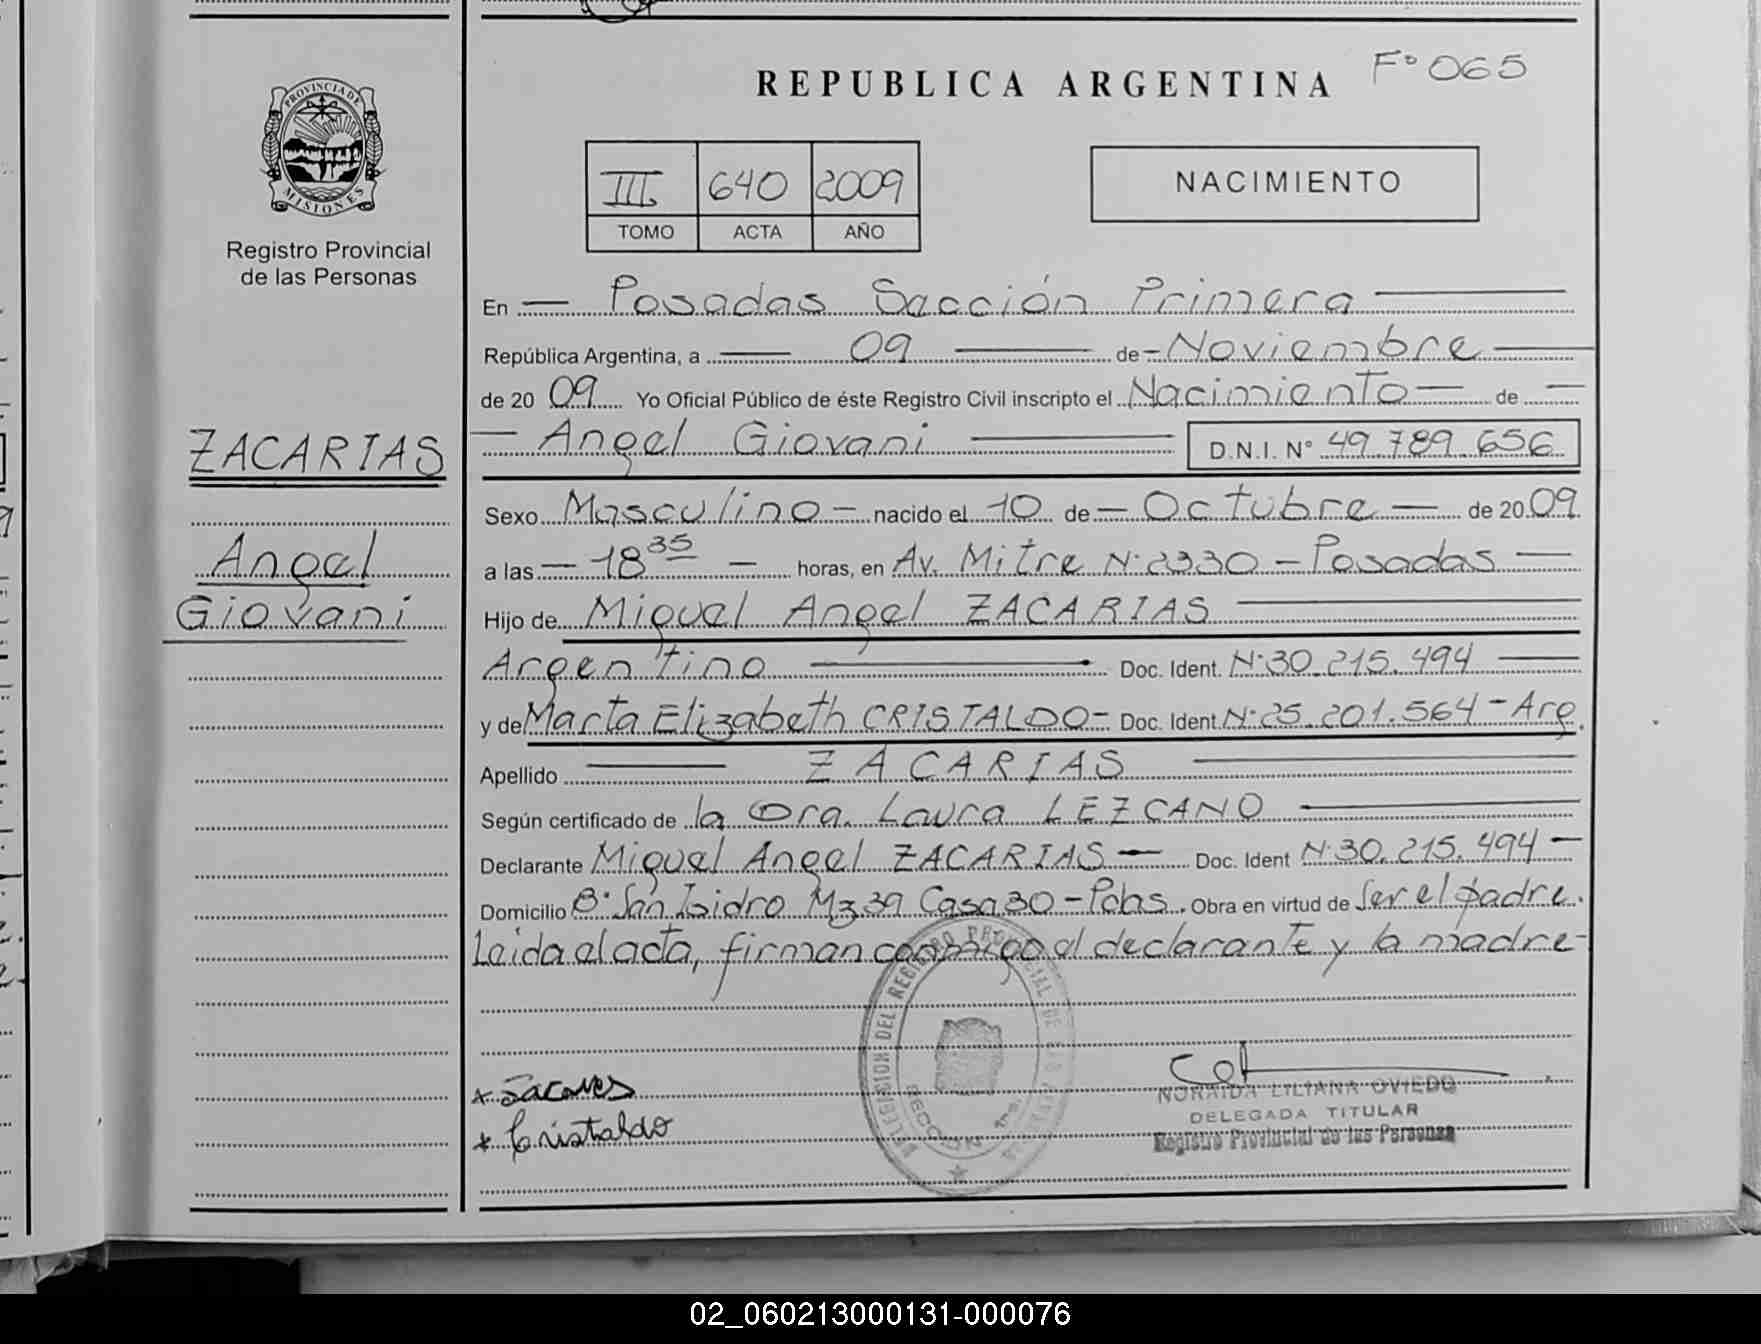 F° 065
REPUBLICA ARGENTINA
PROVINCIA DE
MISIONES
Registro Provincial
de las Personas
III 640 2009
TOMO ACTA AÑO
NACIMIENTO
En — Posadas Sección Primera —
República Argentina, a — 09 — de — Noviembre —
de 20 09 Yo Oficial Público de éste Registro Civil inscripto el Nacimiento — de —
ZACARIAS
— Angel Giovani — D.N.I. N° 49.789.656
Sexo Masculino — nacido el 10 de — Octubre — de 20 09
Angel
a las — 18 35 — horas, en Av. Mitre N° 2330 — Posadas —
Giovani
Hijo de Miguel Angel ZACARIAS —
Argentino — Doc. Ident. N° 30.215.494 —
y de Marta Elizabeth CRISTALDO — Doc. Ident. N° 25.201.564 — Arg.
Apellido — ZACARIAS —
Según certificado de la Dra. Laura LEZCANO —
Declarante Miguel Angel ZACARIAS — Doc. Ident N° 30.215.494 —
Domicilio B° San Isidro Mz 39 Casa 30 — Pdas. Obra en virtud de Ser el padre.
Leida el acta, firman conmigo el declarante y la madre —
DELEGACION DEL REGISTRO PROVINCIAL DE LAS PERSONAS
SECCION 1ra.
* Sacaries
* Cristaldo
NORAIDA LILIANA OVIEDO
DELEGADA TITULAR
Registro Provincial de las Personas
02_060213000131-000076